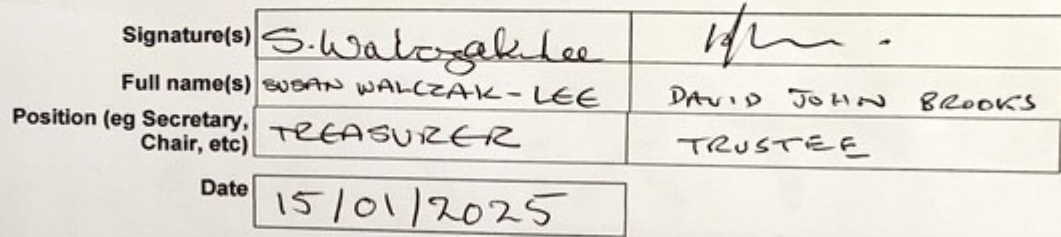 Signature(s) S. Walczak-Lee
Full name(s) SUSAN WALCZAK-LEE DAVID JOHN BROOKS
Position (eg Secretary, Chair, etc) TREASURER TRUSTEE
Date 15/01/2025